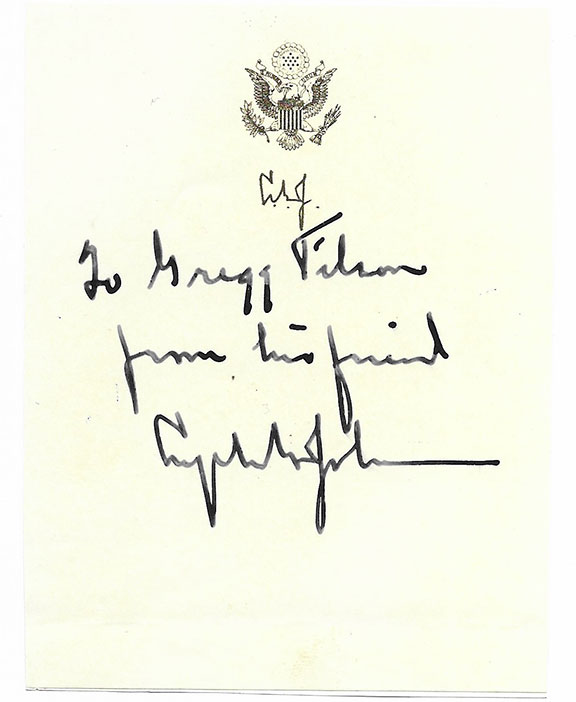 L.B.J.
To Gregg Tilson
from his friend
Lyndon B. Johnson